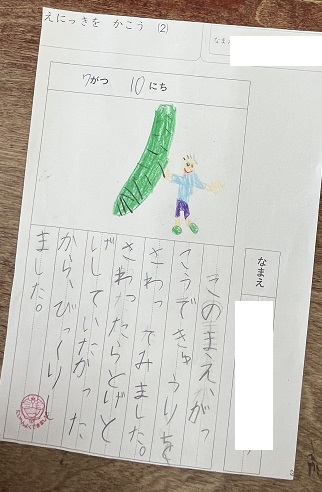 えにっきを かこう (2)
なまえ
7がつ 10にち
なまえ
このまえ、がっ
こうできゅうりを
さわってみました。
さわったらとげと
げしていたがった
から、びっくり
ました。